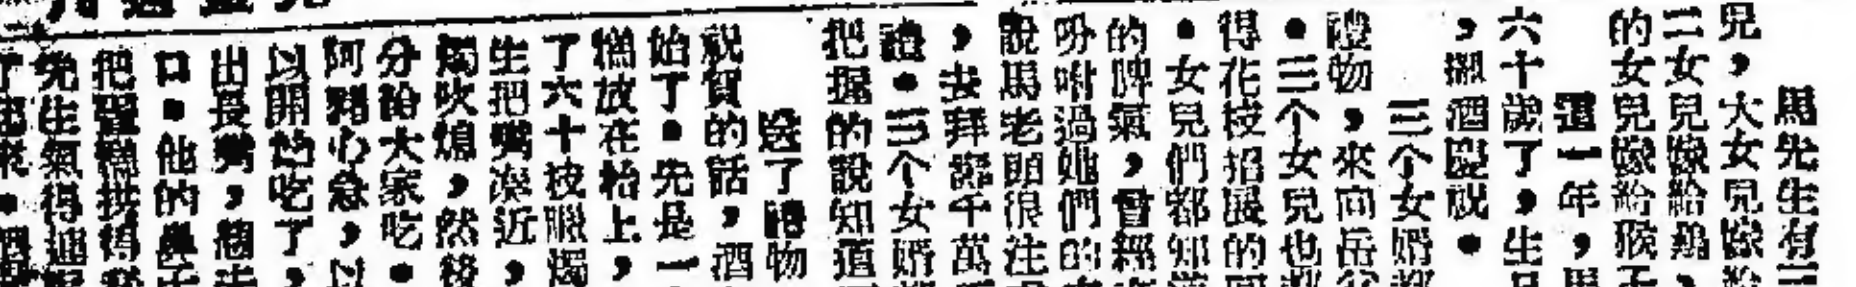 馬先生有三
兒，大女兒嫁給
二女兒嫁給鷄，
的女兒嫁給猴子
這一年，馬
六十歲了，生日
，擺酒慶祝。
三个女婿都
禮物，來向岳父
。三个女兒也都
得花枝招展的回
。女兒們都知道
的脾氣，曾經
吩咐過她們的
說馬老頭很注
，去拜壽千萬
禮。三个女婿都
把握的說知道
送了禮物
祝賀的話，酒
始了。先是一
糕放在枱上，
了六十枝臘燭
生把嘴湊近，
燭吹熄，然後
分給大家吃。
阿豬心急，以
以開始吃了，
出長嘴，趨
口。他的鼻子
把蛋糕拱得
先生氣得